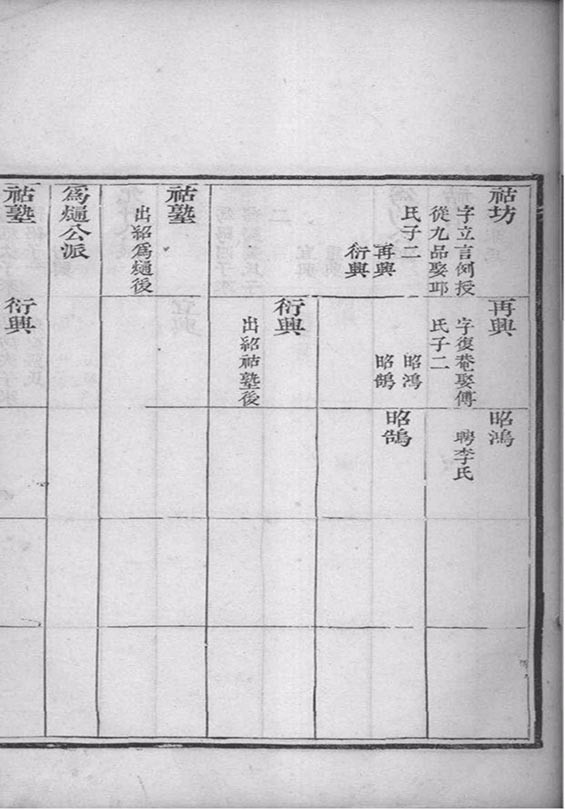 祜坊
字立言例授
從九品娶邱
氏子二
再興
衍興
再興
字復菴娶傅
氏子二
昭鴻
昭鵠
昭鴻
聘李氏
昭鵠
衍興
出紹祜塾後
祜塾
出紹為𤐣後
為𤐣公派
祜塾
衍興